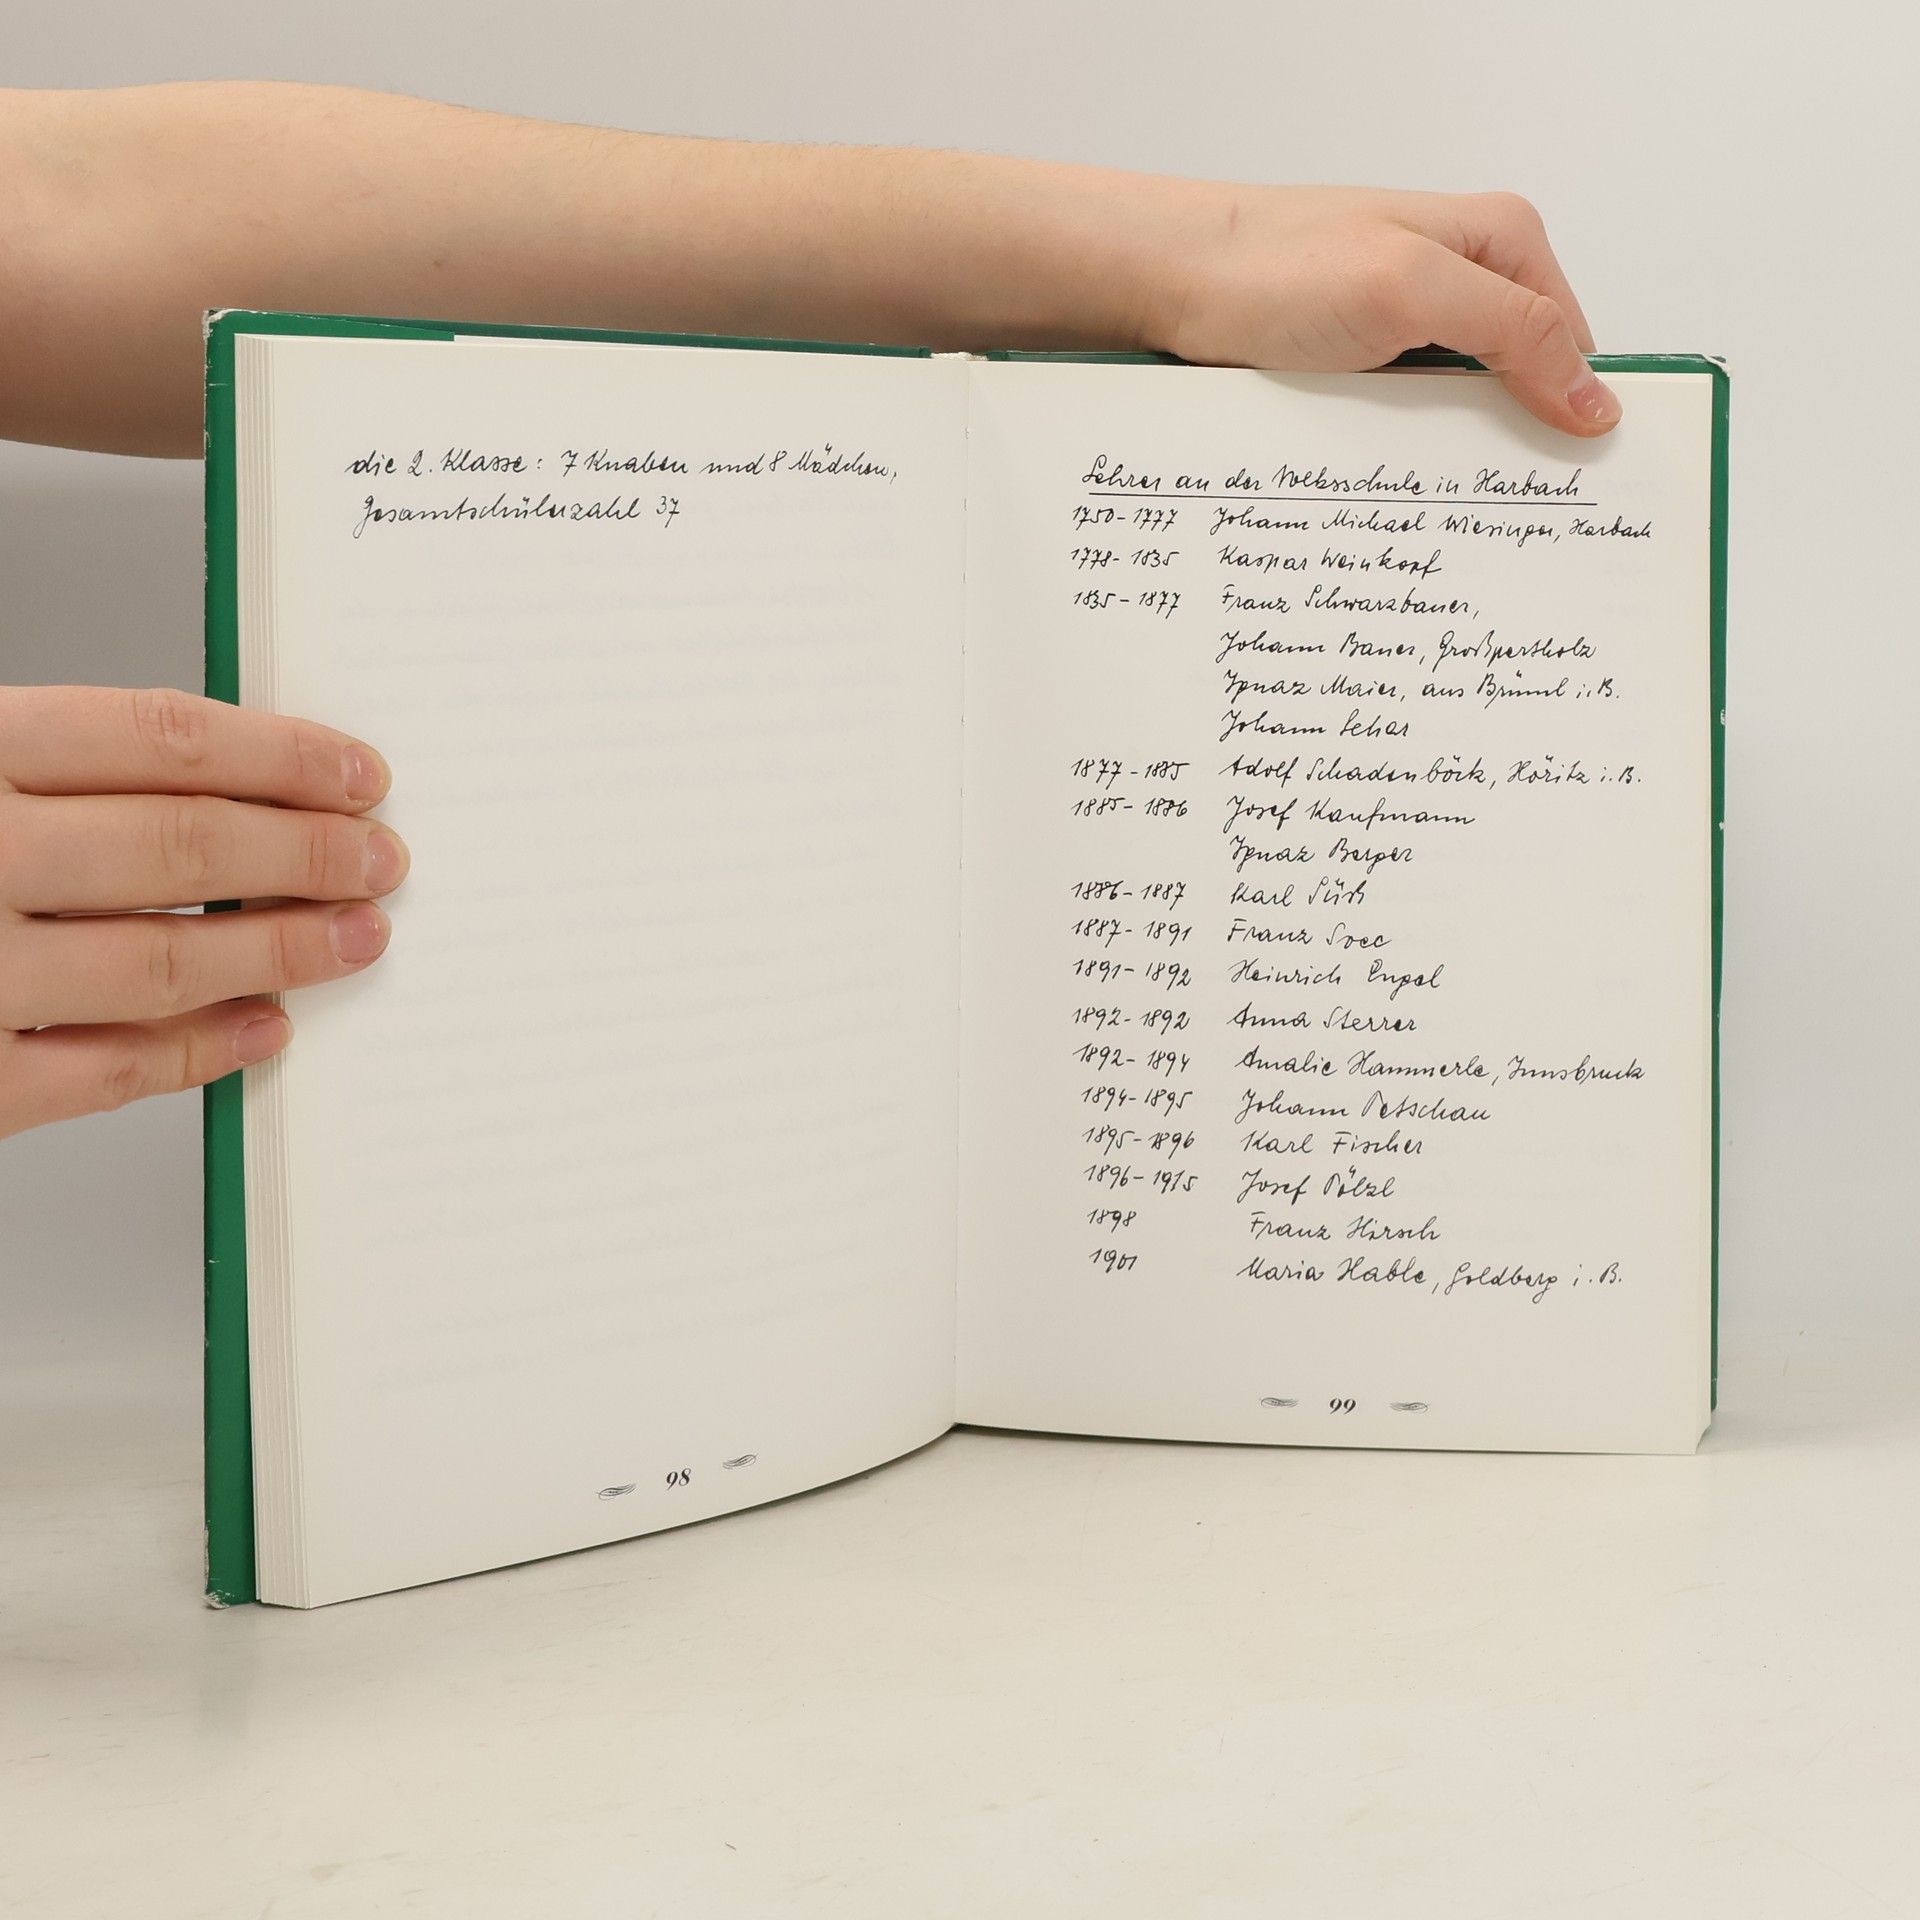 die 2. Klasse: 7 Knaben und 8 Mädchen,
Gesamtschülerzahl 37
98
Lehrer an der Volksschule in Harbach
1750-1777 Johann Michael Wiesinger, Harbach
1778-1835 Kaspar Weinkopf
1835-1877 Franz Schwarzbauer,
Johann Bauer, Großpertholz
Ignaz Maier, aus Brünnl i. B.
Johann Lehar
1877-1885 Adolf Schadenböck, Höritz i. B.
1885-1886 Josef Kaufmann
Ignaz Berger
1886-1887 Karl Süß
1887-1891 Franz Svec
1891-1892 Heinrich Engel
1892-1892 Anna Sterrer
1892-1894 Amalie Hammerle, Innsbruck
1894-1895 Johann Petschau
1895-1896 Karl Fischer
1896-1915 Josef Pölzl
1898 Franz Hirsch
1901 Maria Hable, Goldberg i. B.
99